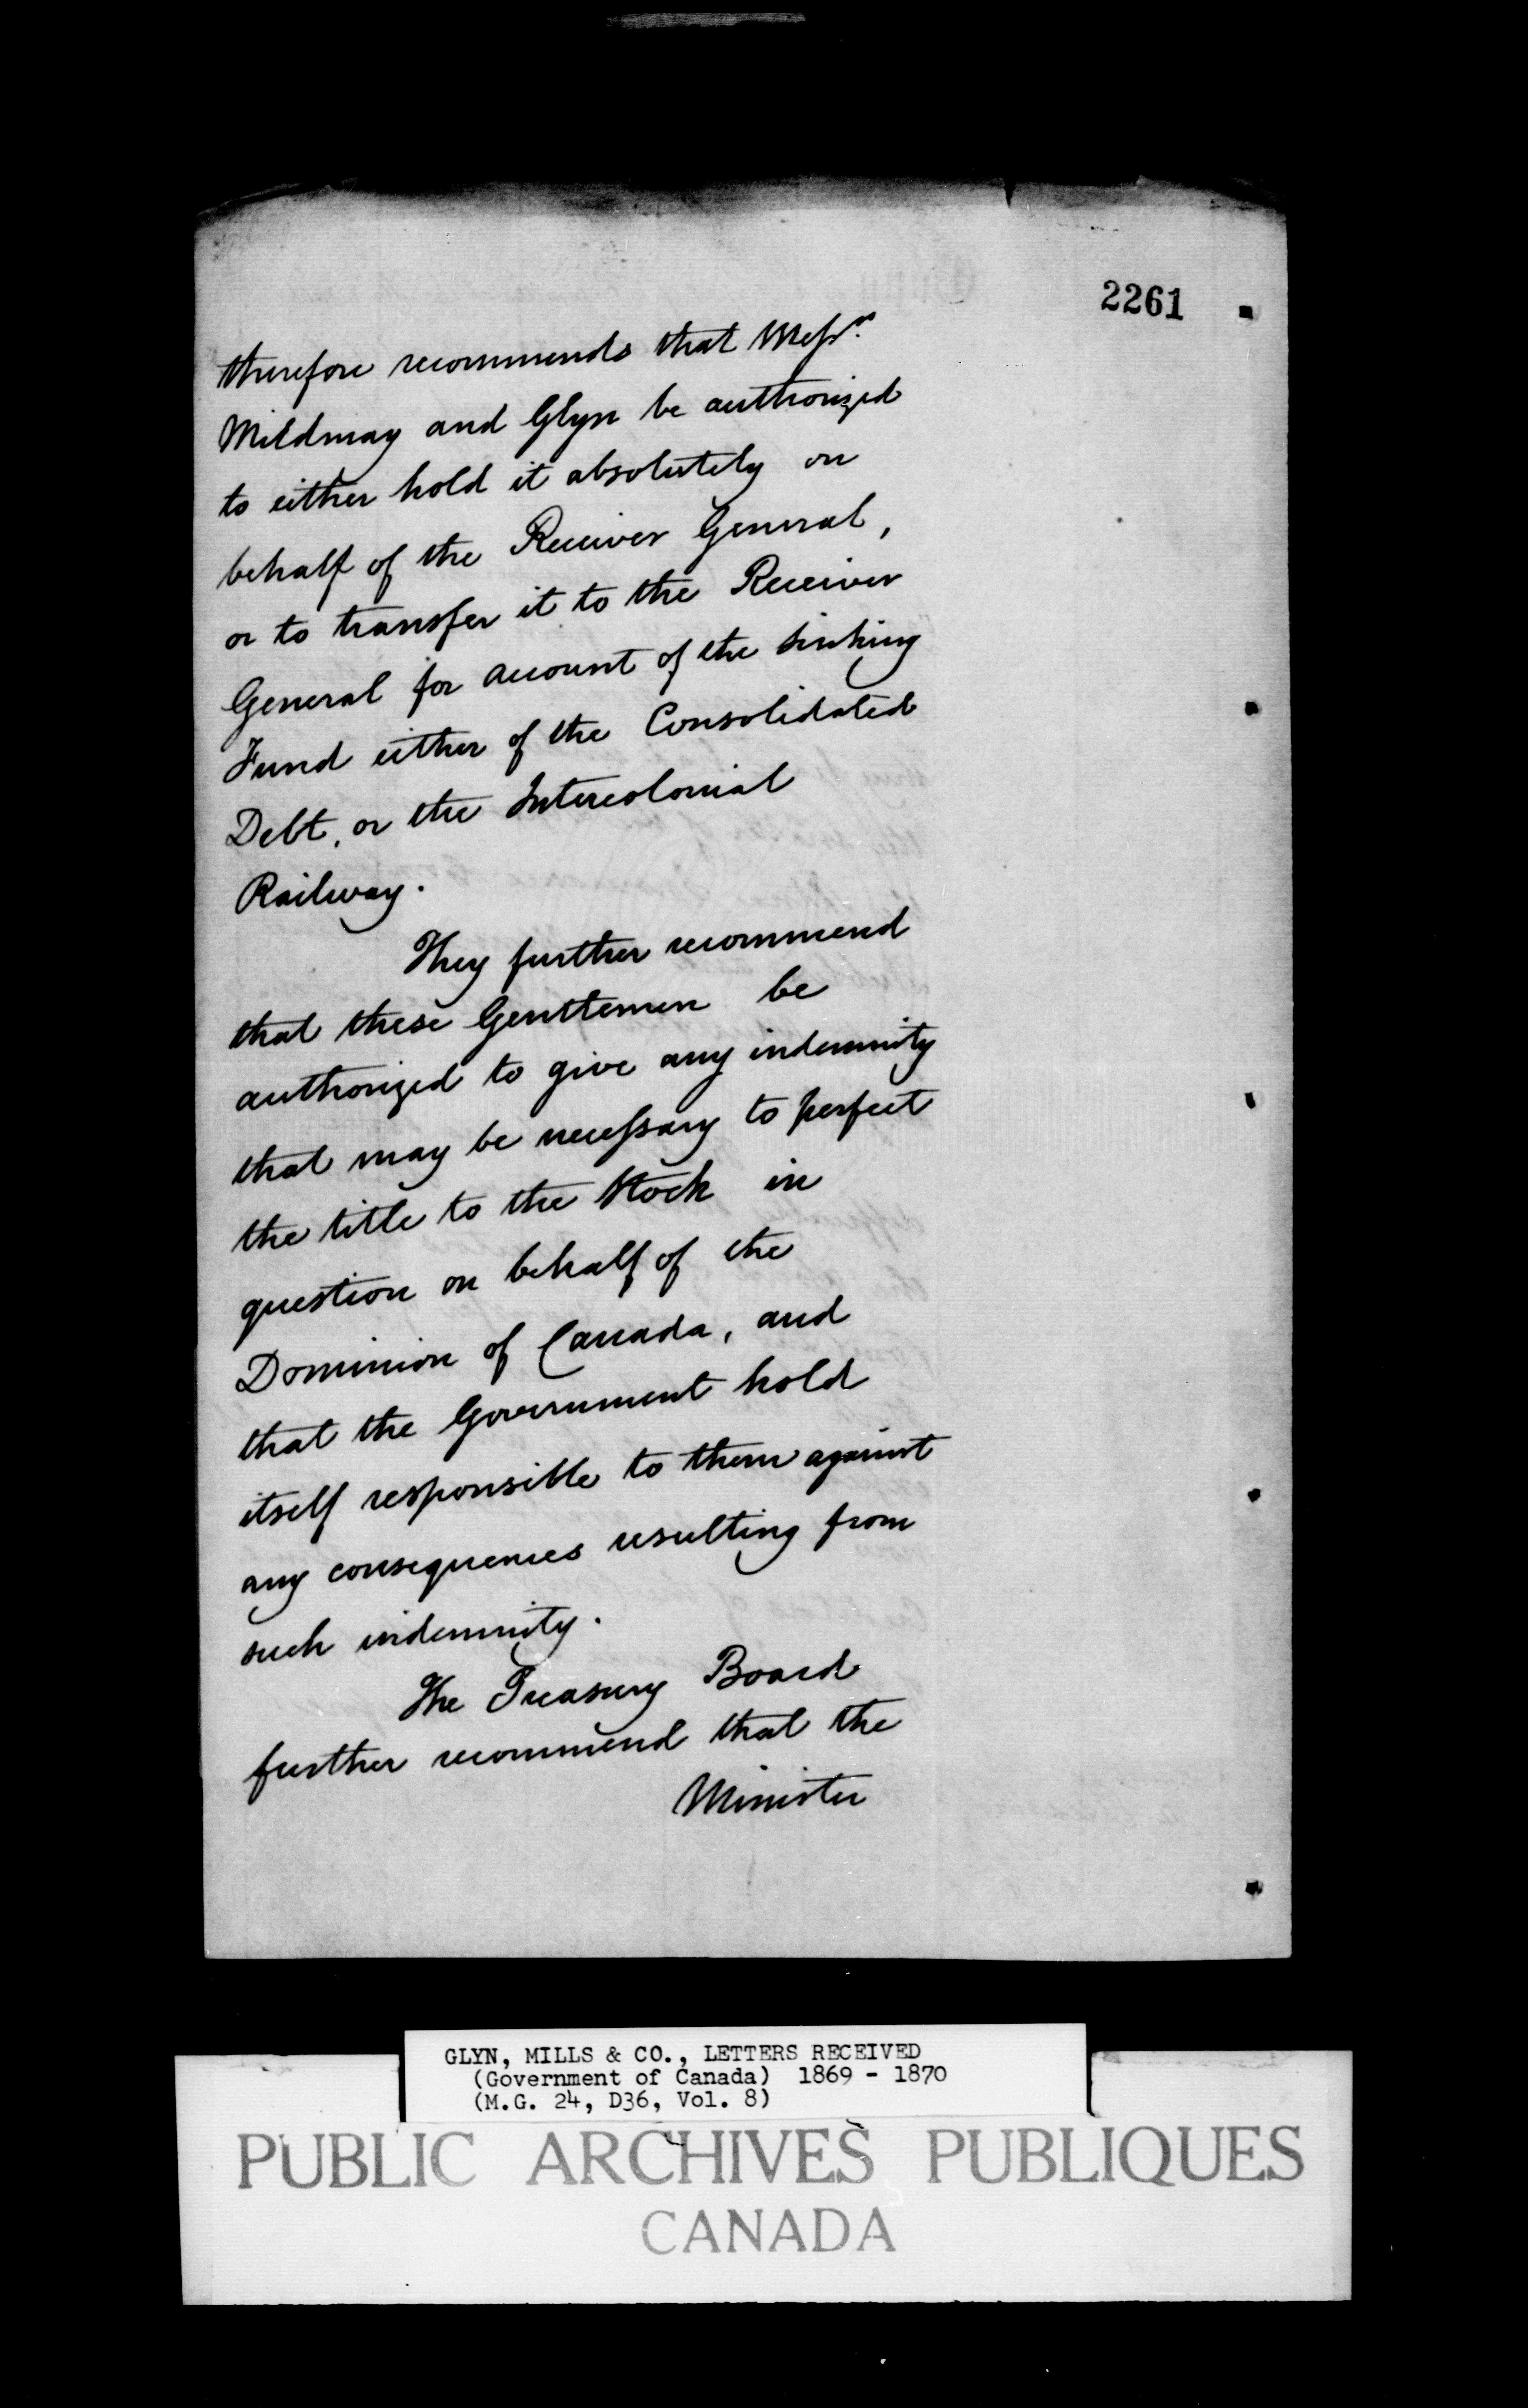 2261
therefore recommends that Messrs.
Mildmay and Glyn be authorized
to either hold it absolutely on
behalf of the Receiver General,
or to transfer it to the Receiver
General for account of the Sinking
Fund either of the Consolidated
Debt, or the Intercolonial
Railway.
They further recommend
that these Gentlemen be
authorized to give any indemnity
that may be necessary to perfect
the title to the Stock in
question on behalf of the
Dominion of Canada, and
that the Government hold
itself responsible to them against
any consequences resulting from
such indemnity.
The Treasury Board
further recommend that the
Minister
GLYN, MILLS & CO., LETTERS RECEIVED
(Government of Canada) 1869 - 1870
(M.G. 24, D36, Vol. 8)
PUBLIC ARCHIVES PUBLIQUES
CANADA